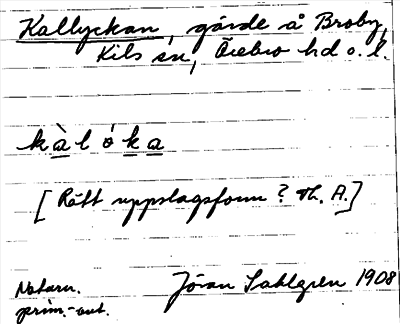 Kallyckan, gärde å Broby,
Kils sn, Örebro hd o. l.
kàlóka
[Rätt uppslagsform? Th. A.]
Naturn. Jöran Sahlgren 1908
prim.-ant.